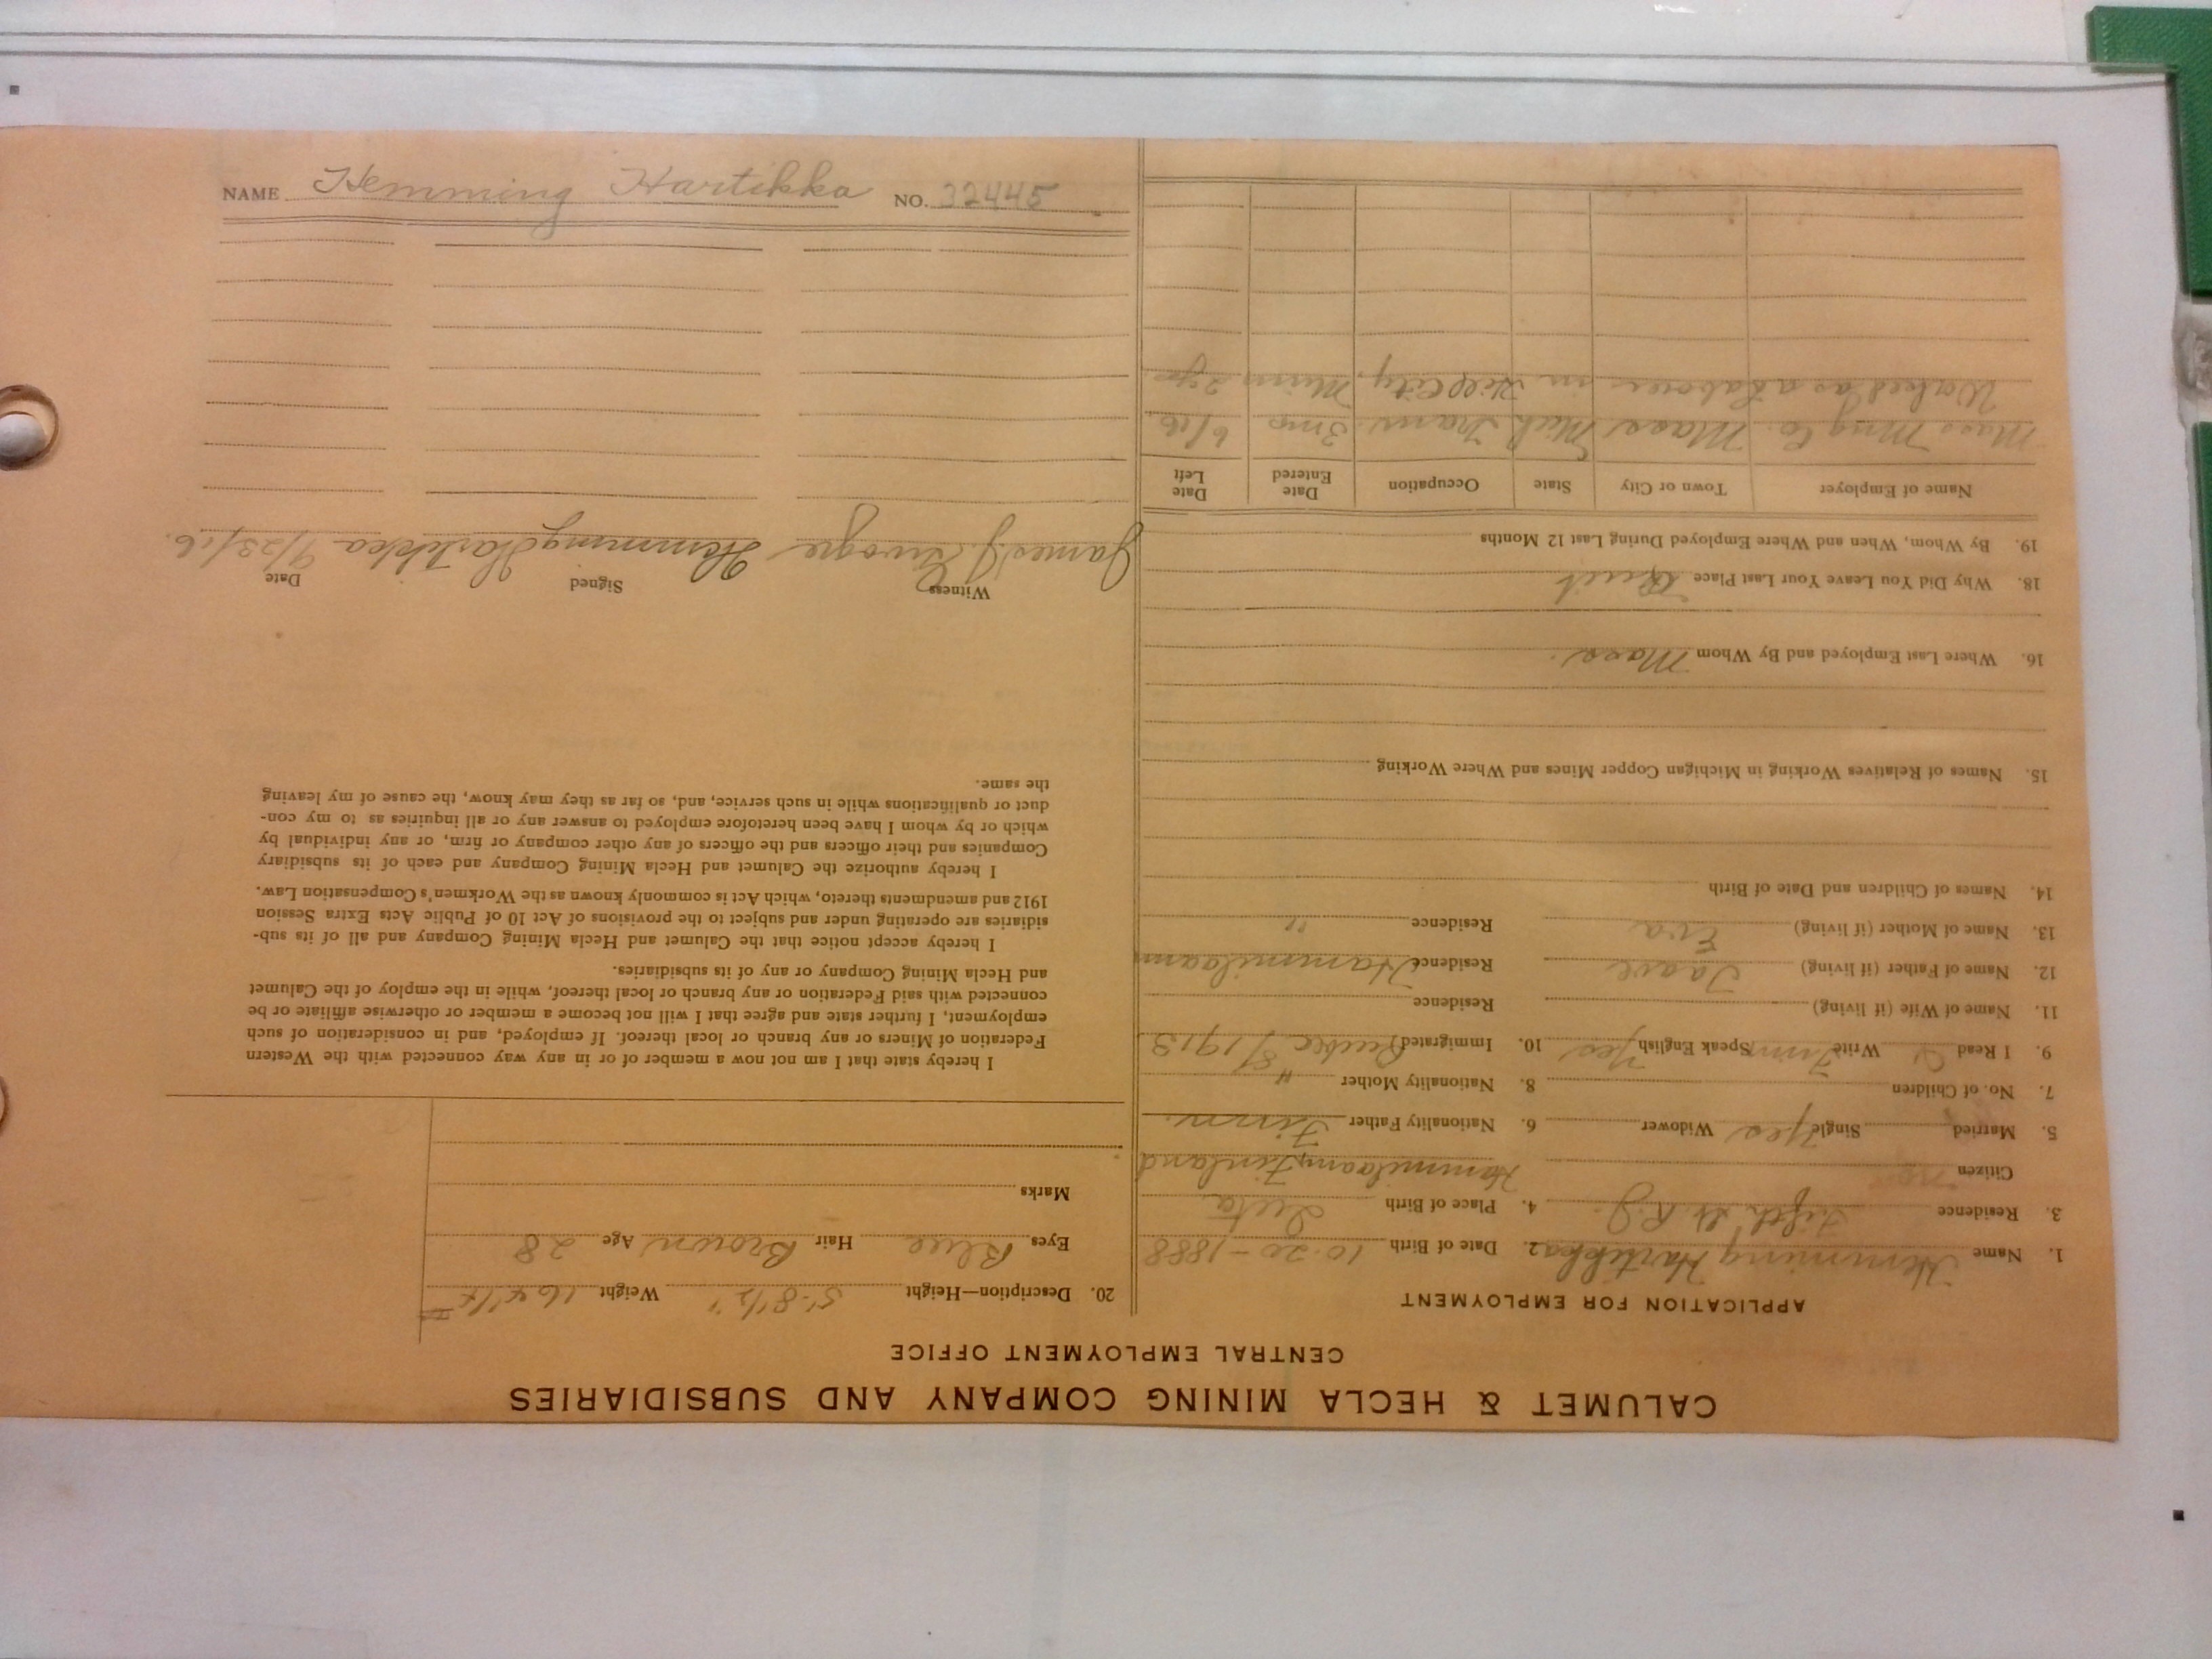 CALUMET & HECLA MINING COMPANY AND SUBSIDIARIES
CENTRAL EMPLOYMENT OFFICE
APPLICATION FOR EMPLOYMENT
1. Name Hemming Hartikka 2. Date of Birth 10-20-1888
3. Residence Fifth St R.J. 4. Place of Birth
Citizen no Hammilaam, Finland
5. Married Single Yes Widower 6. Nationality Father Finn.
7. No. of Children 8. Nationality Mother "
9. I Read Write Finn Speak English Yes 10. Immigrated 1913
11. Name of Wife (if living) Residence
12. Name of Father (if living) Taave Residence Hammilaam
13. Name of Mother (if living) Eva Residence "
14. Names of Children and Date of Birth
15. Names of Relatives Working in Michigan Copper Mines and Where Working
16. Where Last Employed and By Whom Mass.
18. Why Did You Leave Your Last Place Quit
19. By Whom, When and Where Employed During Last 12 Months
Name of Employer Town or City State Occupation Date Entered Date Left
Mass Mng Co. Mass Mich Tram. 3 mo 6/16
Worked as a Laborer in Hill City, Minn 2 yr
20. Description—Height 5'-8 1/2" Weight 164#
Eyes Blue Hair Brown Age 28
Marks
I hereby state that I am not now a member of or in any way connected with the Western
Federation of Miners or any branch or local thereof. If employed, and in consideration of such
employment, I further state and agree that I will not become a member or otherwise affiliate or be
connected with said Federation or any branch or local thereof, while in the employ of the Calumet
and Hecla Mining Company or any of its subsidiaries.
I hereby accept notice that the Calumet and Hecla Mining Company and all of its sub-
sidiaries are operating under and subject to the provisions of Act 10 of Public Acts Extra Session
1912 and amendments thereto, which Act is commonly known as the Workmen's Compensation Law.
I hereby authorize the Calumet and Hecla Mining Company and each of its subsidiary
Companies and their officers and the officers of any other company or firm, or any individual by
which or by whom I have been heretofore employed to answer any or all inquiries as to my con-
duct or qualifications while in such service, and, so far as they may know, the cause of my leaving
the same.
Witness Signed Date
James J. Hemming Hartikka 9/23/16.
NAME Hemming Hartikka NO. 32445